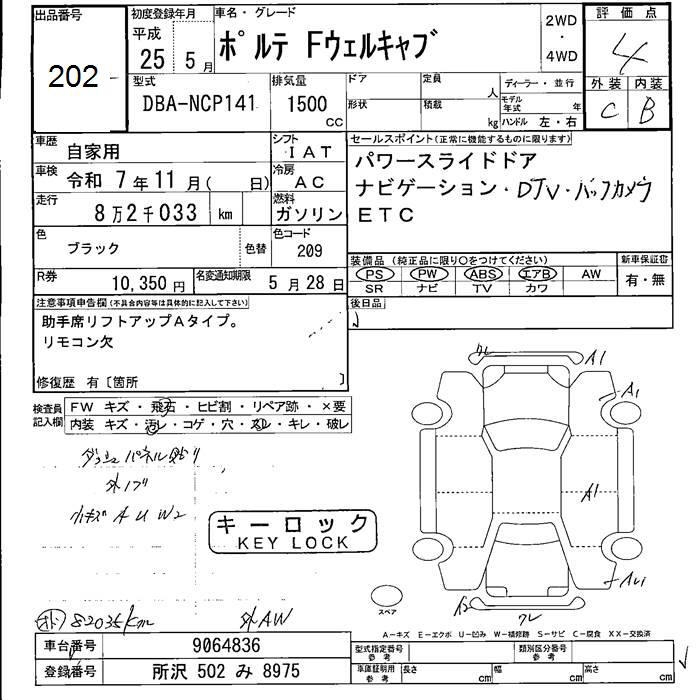 出品番号
202
初度登録年月
平成
25 5月
車名・グレード
ポルテ Fウェルキャブ
2WD
・
4WD
評価点
4
外装 内装
C B
型式
DBA-NCP141
排気量
1500
CC
ドア
形状
定員
人
積載
kg
ディーラー・並行
モデル年式 年
ハンドル 左・右
車歴
自家用
シフト
IAT
車検
令和 7年 11月( 日)
冷房
AC
走行
8万2千033 km
燃料
ガソリン
色
ブラック
色替
色コード
209
R券
10,350円
名変通知期限
5月28日
セールスポイント(正常に機能するものに限ります)
パワースライドドア
ナビゲーション・DTV・バックカメラ
ETC
装備品(純正品に限り○をつけてください)
PS PW ABS エアB AW
SR ナビ TV カワ
新車保証書
有・無
後日品
注意事項申告欄(不具合内容等は具体的に記入して下さい)
助手席リフトアップAタイプ。
リモコン欠
修復歴 有〔箇所 〕
検査員
記入欄
FW キズ・飛石・ヒビ割・リペア跡・×要
内装 キズ・汚レ・コゲ・穴・スレ・キレ・破レ
ダッシュパネル貼り
小キズ A U W2
キーロック
KEY LOCK
82035km
外AW
クレ
A1
A1
A1
AU1
A2
クレ
スペア
A−キズ E−エクボ U−凹み W−補修跡 S−サビ C−腐食 XX−交換済
車台番号
9064836
登録番号
所沢 502 み 8975
型式指定番号
参考
類別区分番号
参考
車庫証明用
参考
長さ cm
幅 cm
高さ cm